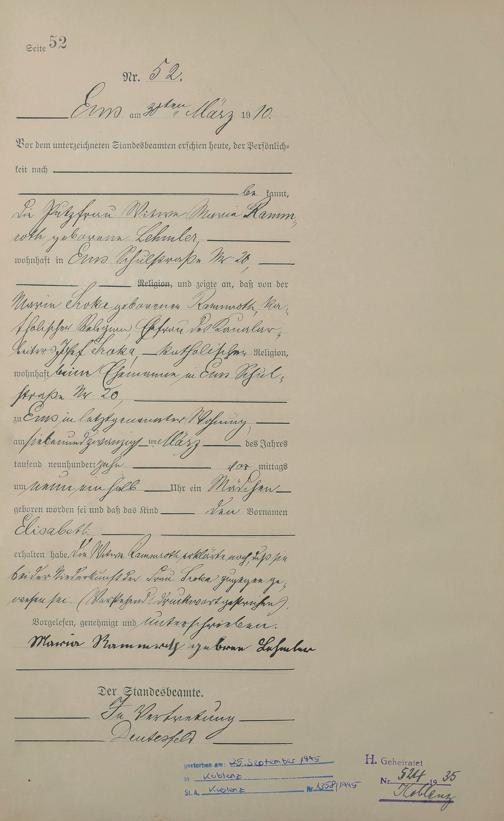 Seite 52
Nr. 52.
Ems am 30ten März 1910.
Vor dem unterzeichneten Standesbeamten erschien heute, der Persönlich-
keit nach
be kannt,
die Putzfrau Witwe Maria Kamm-
roth geborene Lehmler,
wohnhaft in Ems Schulstraße Nr 20,
Religion, und zeigte an, daß von der
Maria geborenen Kammroth, ka-
tholischer Religion, Ehefrau des
Josef katholischer Religion,
wohnhaft beim Ehemanne in Ems Schul-
straße Nr 20
zu Ems in letztgenannter Wohnung,
am siebenundzwanzig ten März des Jahres
tausend neunhundert zehn vor mittags
um neun ein halb Uhr ein Mädchen
geboren worden sei und daß das Kind den Vornamen
Elisabeth
erhalten habe. Die Witwe Kammroth erklärte noch, daß sie
bei der Niederkunft der Frau zugegen ge-
wesen sei. (Vorstehend Druckwort gestrichen).
Vorgelesen, genehmigt und unterschrieben.
Maria Kammroth geborene Lehmler
Der Standesbeamte.
In Vertretung
gestorben am: 25. September 1995
in Koblenz
St.A. Koblenz Nr. 1258/1995
H. Geheiratet
Nr. 524 1935
Koblenz